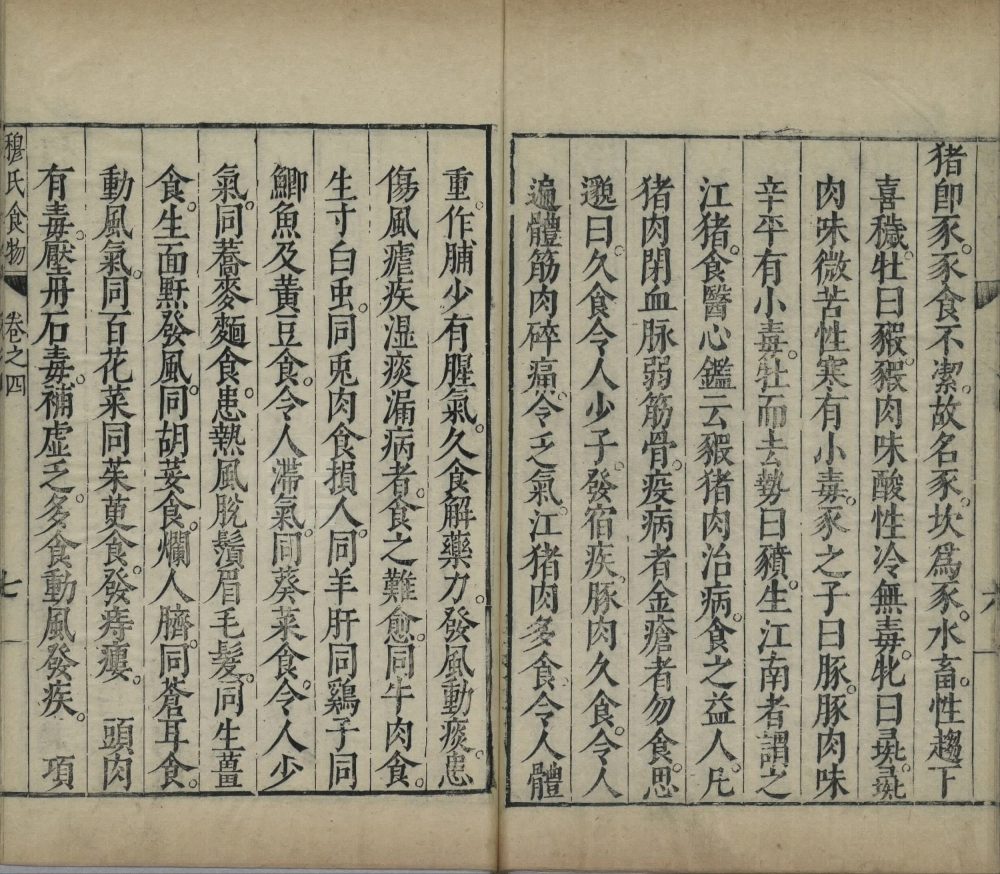 猪卽豕。豕食不潔。故名豕。坎爲豕。水畜。性趨下
喜穢。牡曰豭。豭肉味酸性冷無毒。牝曰彘。彘
肉味微苦性寒有小毒。豕之子曰豚。豚肉味
辛平有小毒。牡而去勢曰豶。生江南者謂之
江猪。食醫心鑑云豭猪肉治病。食之益人。凡
猪肉閉血脉弱筋骨。疫病者金瘡者勿食。思
邈曰。久食令人少子。發宿疾。豚肉久食。令人
遍體筋肉碎痛。令乏氣。江猪肉多食。令人體
重。作脯少有腥氣。久食解藥力。發風動痰。患
傷風瘧疾湿痰漏病者。食之難愈。同牛肉食。
生寸白虫。同兎肉食損人。同羊肝同鷄子同
鯽魚及黃豆食。令人滯氣。同葵菜食。令人少
氣。同蕎麥麵食。患熱風脫鬚眉毛髮。同生薑
食。生面䵟發風。同胡荽食。爛人臍。同蒼耳食。
動風氣。同百花菜同茱萸食。發痔瘻。 頭肉
有毒。壓丹石毒。補虛乏。多食動風發疾。 項
穆氏食物 卷之四 七
六